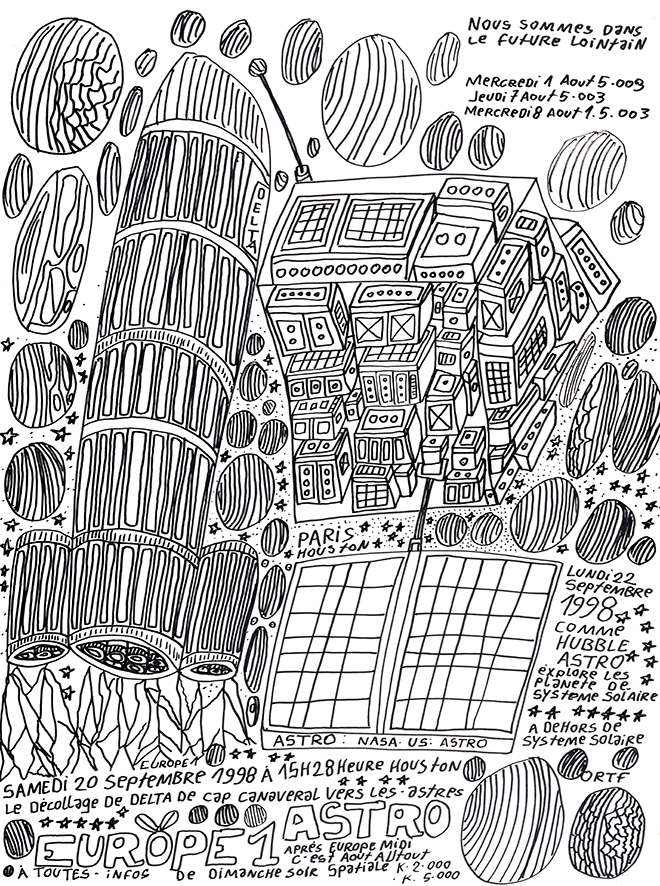 NOUS SOMMES DANS
LE FUTURE LOINTAIN
MERCREDI 1 AOUT 5.009
JEUDI 7 AOUT 5.003
MERCREDI 8 AOUT 1.5.003
DELTA
PARIS
HOUSTON
LUNDI 22
SEPTEMBRE
1998
COMME
HUBBLE
ASTRO
EXPLORE LES
PLANETE DE
SYSTEME SOLAIRE
A DEHORS DE
SYSTEME SOLAIRE
ASTRO: NASA. US: ASTRO
EUROPE 1
SAMEDI 20 SEPTEMBRE 1998 À 15H28 HEURE HOUSTON
ORTF
LE DÉCOLLAGE DE DELTA DE CAP CANAVERAL VERS LES.ASTRES
EUROPE 1 ASTRO
APRÉS EUROPE MIDI
C'EST AOUT ALLTOUT
À TOUTES - INFOS DE DIMANCHE SOIR SPATIALE K.2.000
.K.5.000